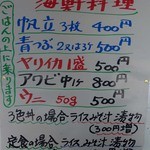 海鮮料理
ごはんの上に乗ります
帆立3枚 400円
青つぶ2又は3ケ 500円
ヤリイカ1盛 500円
アワビ中1ケ 800円
ウニ 50g 500円
3色丼の場合ライスみそ汁漬物
(300円増)
定食の場合ライスみそ汁漬物